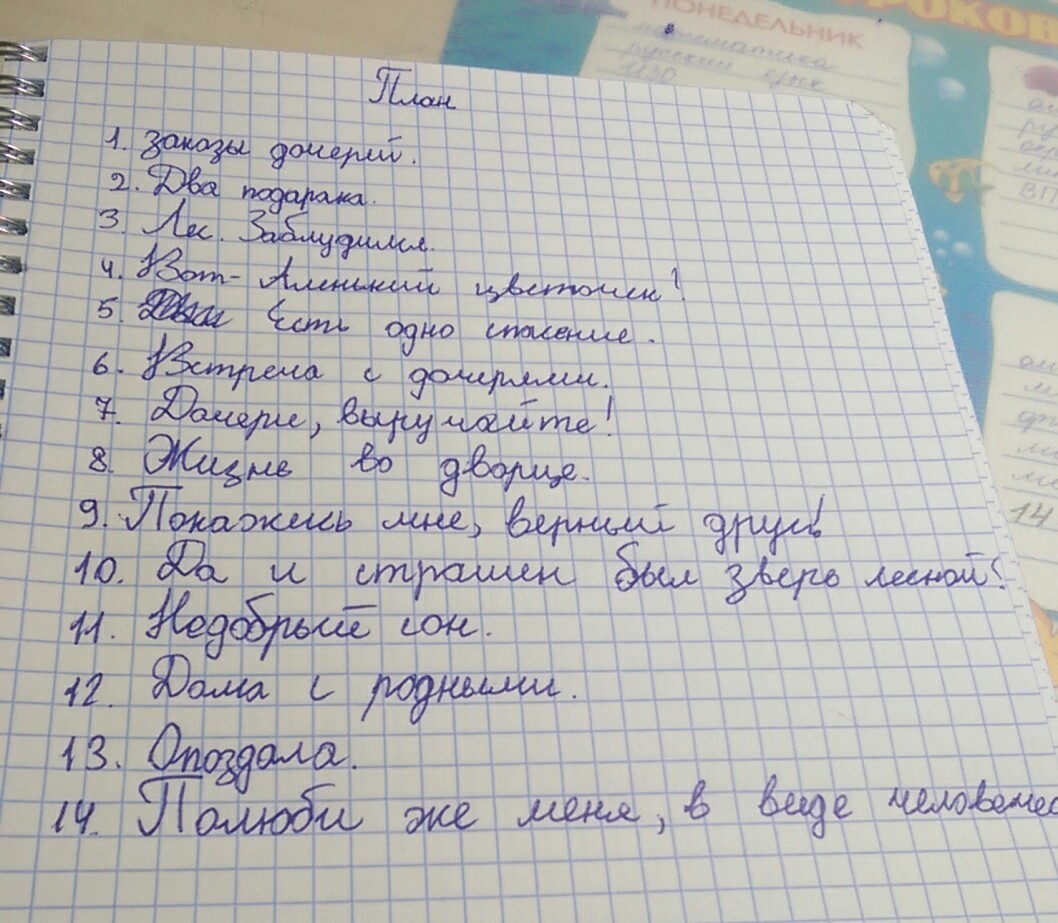 ПОНЕДЕЛЬНИК
РОКОВ
математика
русский язык
ИЗО
План
1. Заказы дочерей.
2. Два подарака.
3. Лес. Заблудился.
4. Вот - Аленький цветочек!
5. Есть одно спасение.
6. Встреча с дочерями.
7. Дочери, выручайте!
8. Жизнь во дворце.
9. Покажись мне, верный друг!
10. Да и страшен был зверь лесной!
11. Недобрый сон.
12. Дома с родными.
13. Опоздала.
14. Полюби же меня, в виде человечес
14